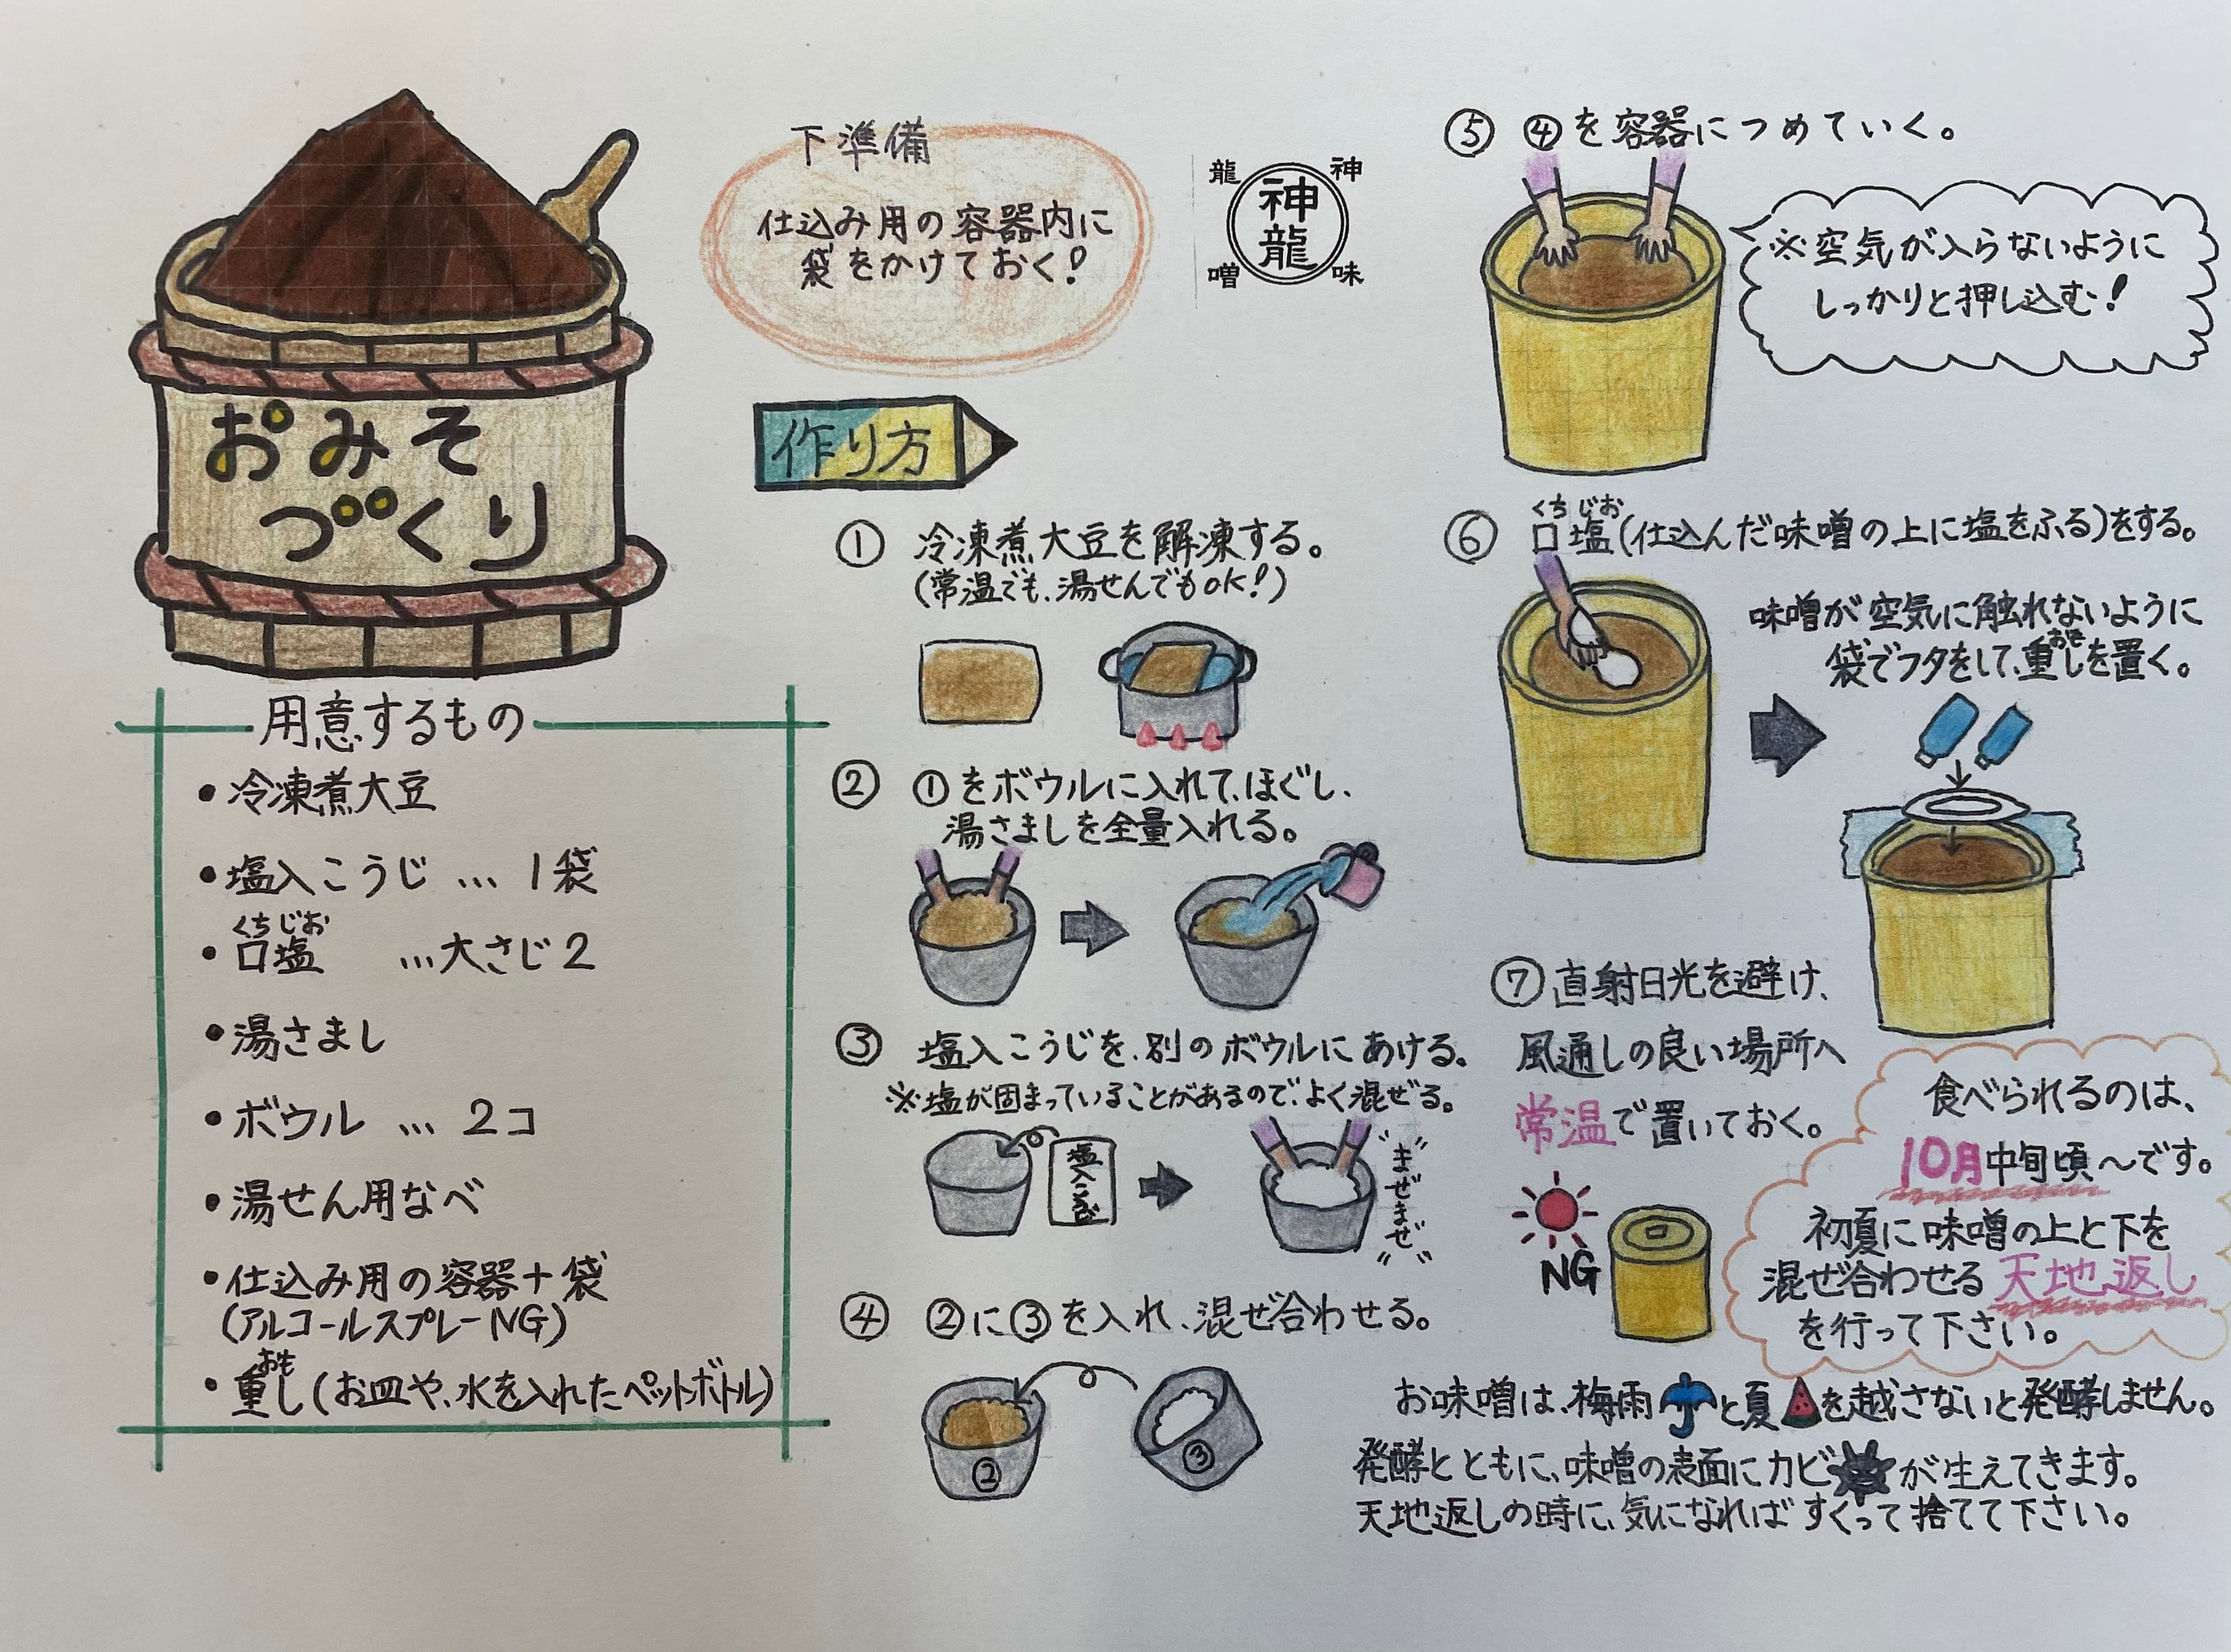 おみそ
づくり
用意するもの
・冷凍煮大豆
・塩入こうじ … 1袋
くちじお
・口塩 …大さじ2
・湯さまし
・ボウル … 2コ
・湯せん用なべ
・仕込み用の容器+袋
(アルコールスプレーNG)
おも
・重し(お皿や、水を入れたペットボトル)
下準備
仕込み用の容器内に
袋をかけておく!
龍 神
神龍
噌 味
作り方
① 冷凍煮大豆を解凍する。
(常温でも、湯せんでもOK!)
② ①をボウルに入れて、ほぐし、
湯さましを全量入れる。
③ 塩入こうじを、別のボウルにあける。
※塩が固まっていることがあるので、よく混ぜる。
塩入こうじ
"まぜまぜ"
④ ②に③を入れ、混ぜ合わせる。
②
③
⑤ ④を容器につめていく。
※空気が入らないように
しっかりと押し込む!
くちじお
⑥ 口塩(仕込んだ味噌の上に塩をふる)をする。
味噌が空気に触れないように
おも
袋でフタをして、重しを置く。
⑦直射日光を避け、
風通しの良い場所へ
常温で置いておく。
NG
食べられるのは、
10月中旬頃~です。
初夏に味噌の上と下を
混ぜ合わせる天地返し
を行って下さい。
お味噌は、梅雨と夏を越さないと発酵しません。
発酵とともに、味噌の表面にカビが生えてきます。
天地返しの時に、気になればすくって捨てて下さい。